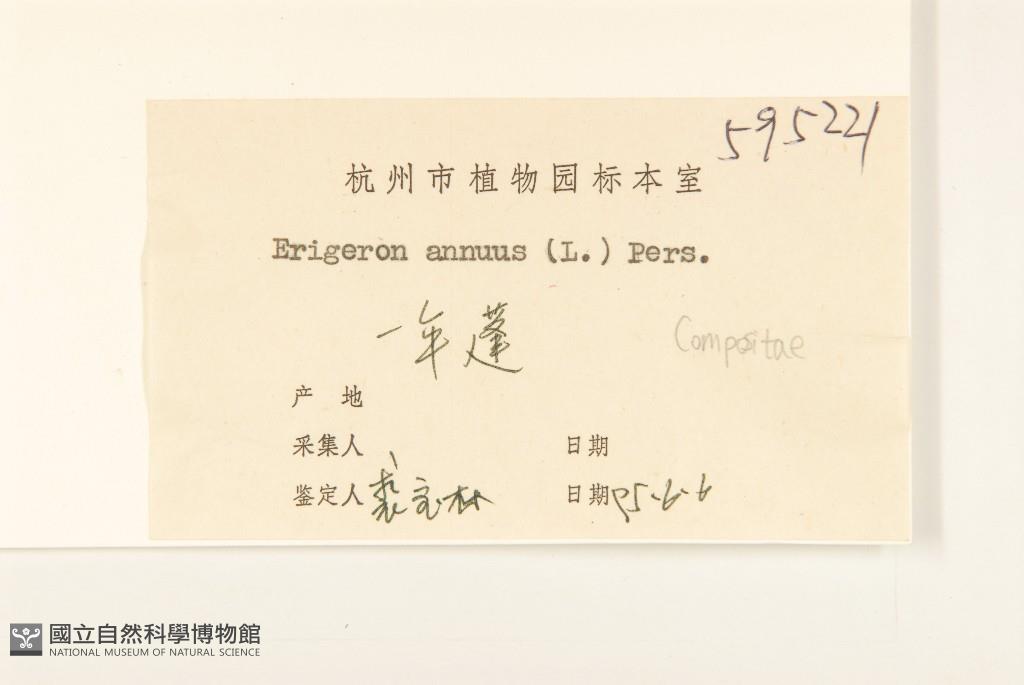 595221
杭州市植物园标本室
Erigeron annuus (L.) Pers.
一年蓬
Compositae
产 地
采集人 日期
鉴定人 裘宝林 日期 95-6-6
國立自然科學博物館
NATIONAL MUSEUM OF NATURAL SCIENCE